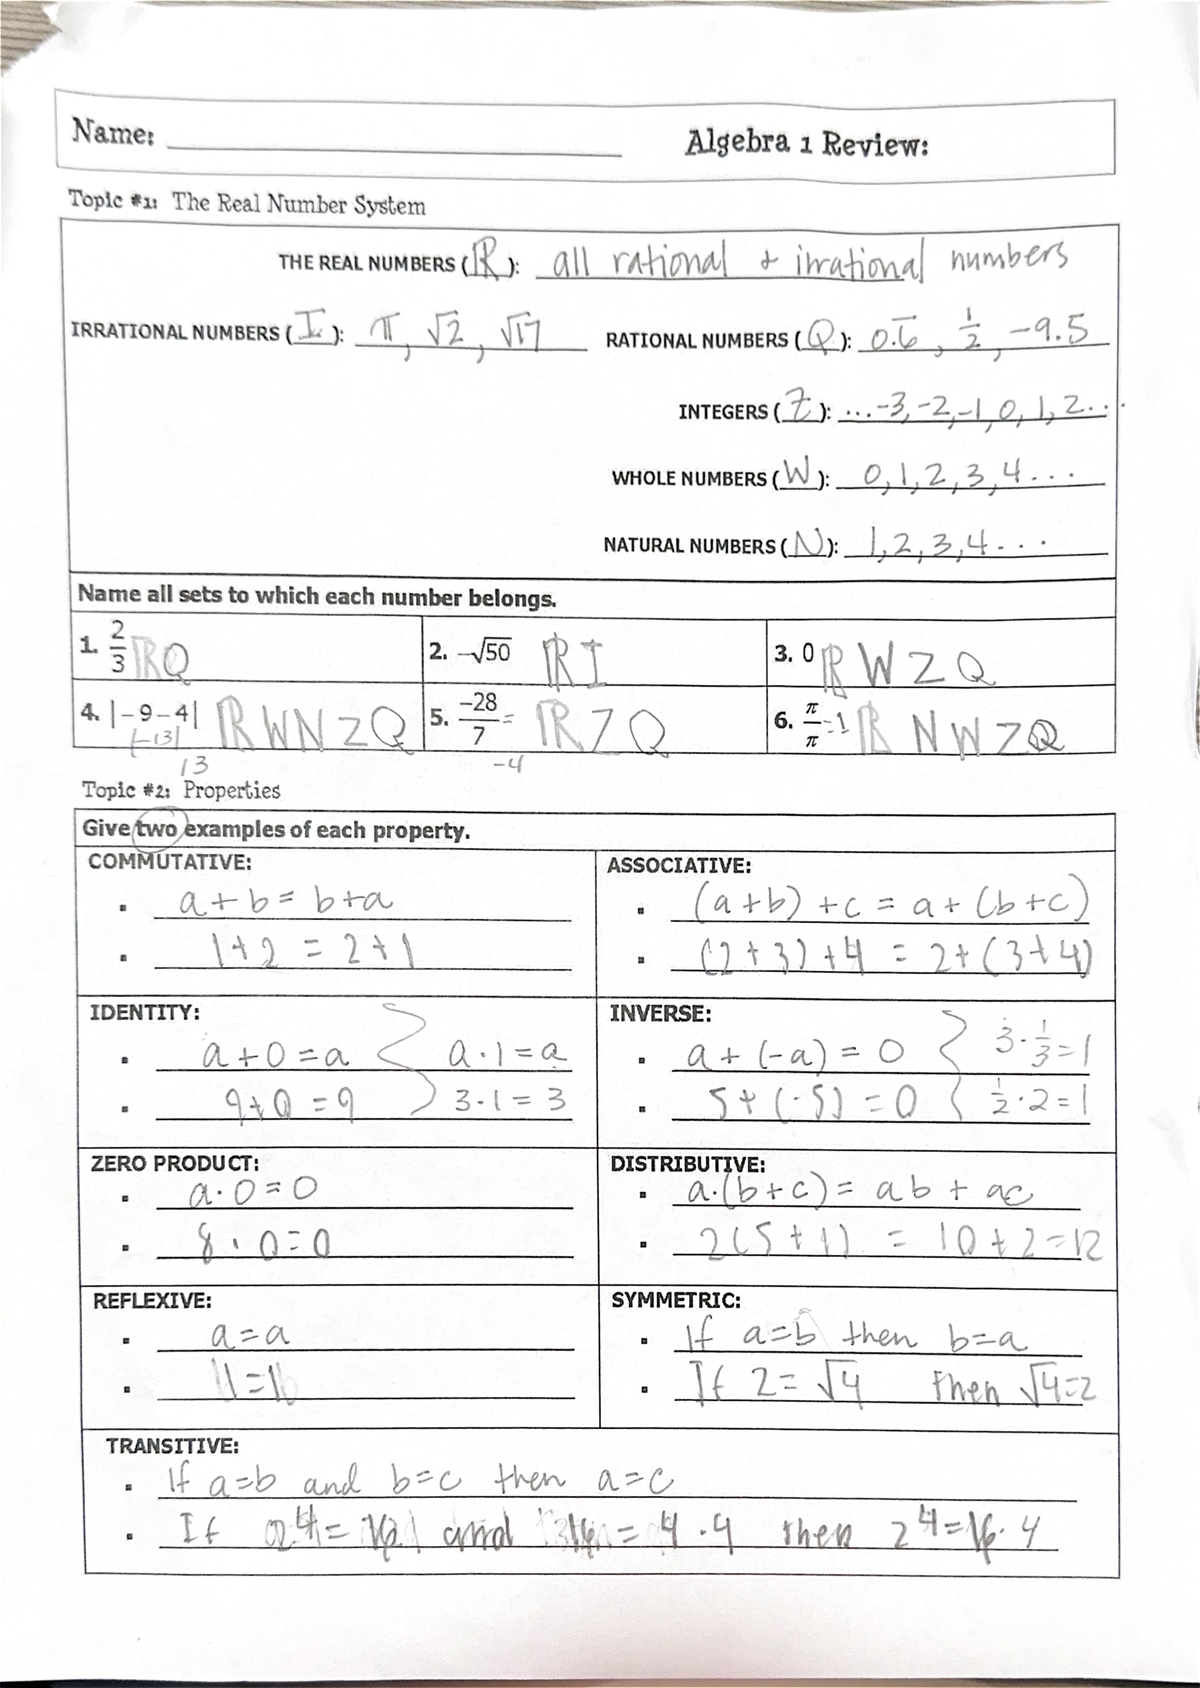 Name: Algebra 1 Review:
Topic #1: The Real Number System
THE REAL NUMBERS (ℝ): all rational + irrational numbers
IRRATIONAL NUMBERS (I): π, √2, √17
RATIONAL NUMBERS (Q): 0.6̅, 1/2, -9.5
INTEGERS (Z): ...-3,-2,-1,0,1,2...
WHOLE NUMBERS (W): 0,1,2,3,4...
NATURAL NUMBERS (N): 1,2,3,4...
Name all sets to which each number belongs.
1. 2/3 ℝ Q
2. -√50 ℝ I
3. 0 ℝ W Z Q
4. |-9-4| ℝ W N Z Q
|-13|
13
5. -28/7 = ℝ Z Q
-4
6. π/π =1 ℝ N W Z Q
Topic #2: Properties
Give two examples of each property.
COMMUTATIVE:
a+b = b+a
1+2 = 2+1
ASSOCIATIVE:
(a+b)+c = a+(b+c)
(2+3)+4 = 2+(3+4)
IDENTITY:
a+0=a a·1=a
9+0=9 3·1=3
INVERSE:
a+(-a)=0 3·1/3=1
5+(-5)=0 1/2·2=1
ZERO PRODUCT:
a·0=0
8·0=0
DISTRIBUTIVE:
a·(b+c)=ab+ac
2(5+1) = 10+2=12
REFLEXIVE:
a=a
11=11
SYMMETRIC:
If a=b then b=a
If 2=√4 then √4=2
TRANSITIVE:
If a=b and b=c then a=c
If 2⁴= 16 and 16 = 4·4 then 2⁴=